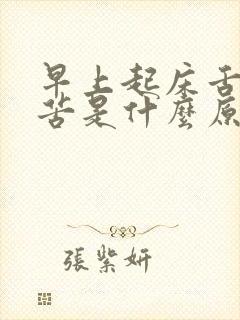 早上起床舌
苦是什麼原
張紫妍